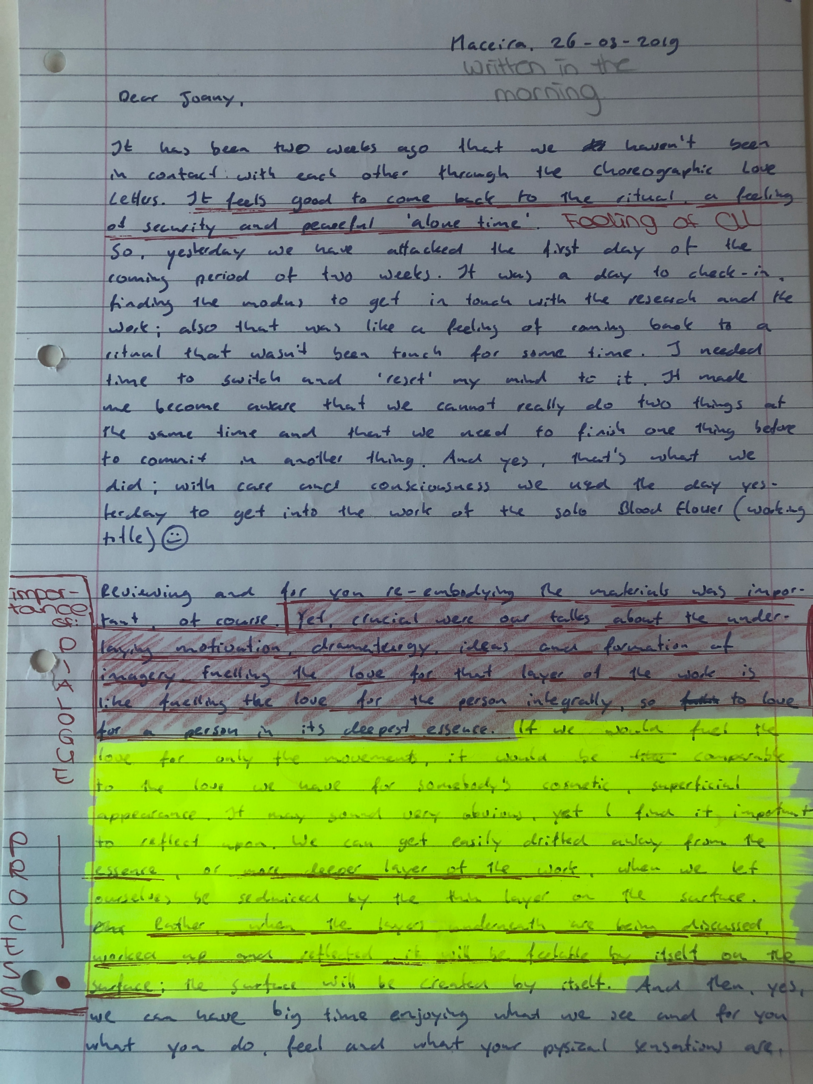 Maceira, 26-03-2019
written in the
morning
Dear Joany,
It has been two weeks ago that we haven't been
in contact with each other through the choreographic Love
Letters. It feels good to come back to the ritual, a feeling
of security and peaceful 'alone time'. Feeling of CLL
So, yesterday we have attacked the first day of the
coming period of two weeks. It was a day to check-in,
finding the modus to get in touch with the research and the
work; also that was like a feeling of coming back to a
ritual that wasn't been touch for some time. I needed
time to switch and 'reset' my mind to it. It made
me become aware that we cannot really do two things at
the same time and that we need to finish one thing before
to commit in another thing. And yes, that's what we
did; with care and consciousness we used the day yes-
terday to get into the work of the solo Blood Flower (working
title) ☺
impor-
tance
of:
DIALOGUE
PROCESS
Reviewing and for you re-embodying the materials was impor-
tant, of course. Yet, crucial were our talks about the under-
laying motivation, dramaturgy, ideas and formation of
imagery. Fuelling the love for that layer of the work is
like fuelling the love for the person integrally, so to love
for a person in its deepest essence. If we would fuel the
love for only the movement, it would be comparable
to the love we have for somebody's cosmetic, superficial
appearance. It may sound very obvious, yet I find it important
to reflect upon. We can get easily drifted away from the
essence, or more deeper layer of the work, when we let
ourselves be seduniced by the thin layer on the surface.
Rather, when the layers underneath are being discussed,
worked up and reflected it will be feelable by itself on the
surface; the surface will be created by itself. And then, yes,
we can have big time enjoying what we see and for you
what you do, feel and what your pysizal sensations are,